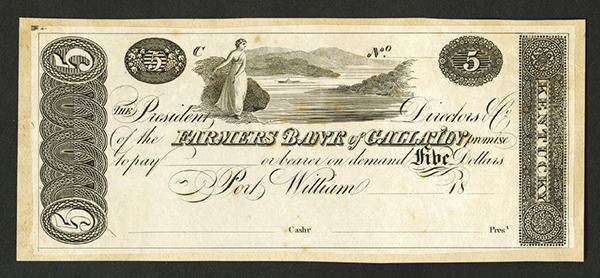 5
5
C
No
5
5
KENTUCKY
THE President Directors & Co
of the FARMERS BANK of GALLATIN promise
to pay or bearer on demand Five Dollars
Port William 18
Cashr Prest